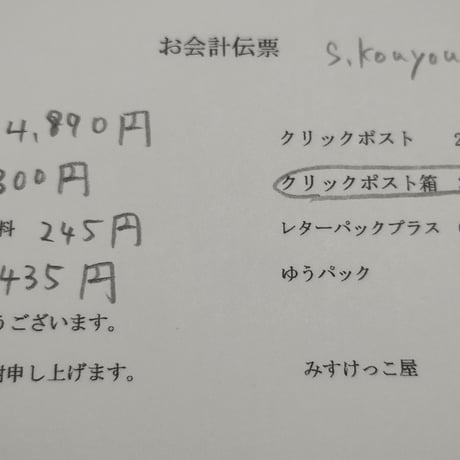 お会計伝票
s.kouyou
4,890円
300円
料 245円
435円
うございます。
申し上げます。
クリックポスト 2
クリックポスト箱
レターパックプラス
ゆうパック
みすけっこ屋